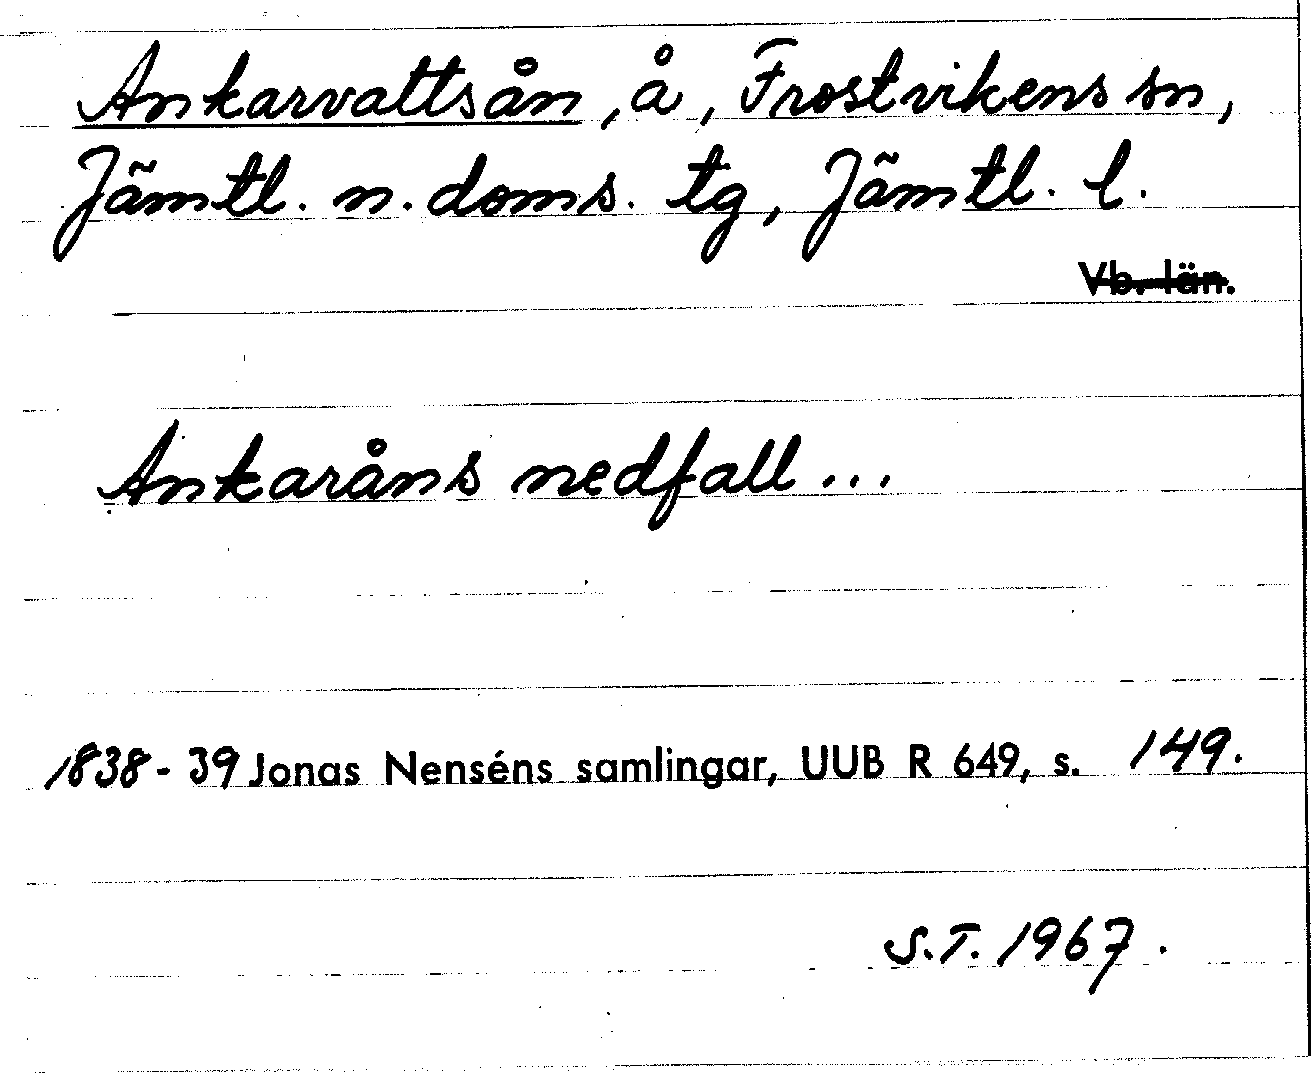 Ankarvattsån, å, Frostvikens sn,
Jämtl. n. doms. tg, Jämtl. l.
Vb. län.
Ankaråns nedfall...
1838-39 Jonas Nenséns samlingar, UUB R 649, s. 149.
S.T. 1967.